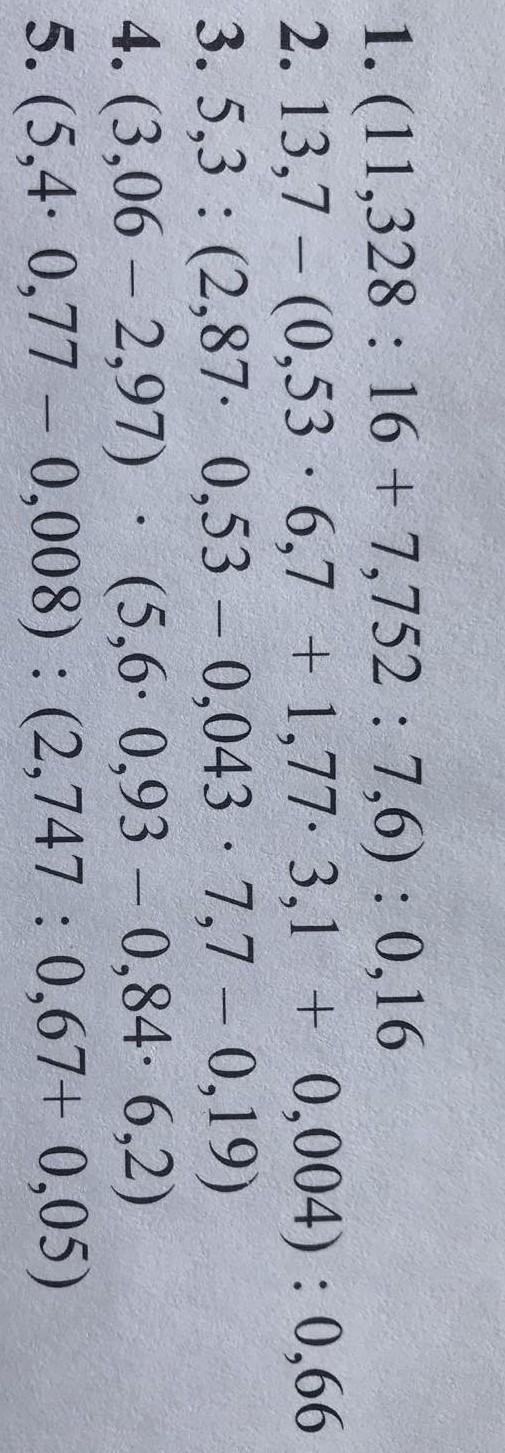 1. (11,328 : 16 + 7,752 : 7,6) : 0,16
2. 13,7 – (0,53 · 6,7 + 1,77· 3,1 + 0,004) : 0,66
3. 5,3 : (2,87· 0,53 – 0,043 · 7,7 – 0,19)
4. (3,06 – 2,97) · (5,6· 0,93 – 0,84· 6,2)
5. (5,4· 0,77 – 0,008) : (2,747 : 0,67+ 0,05)